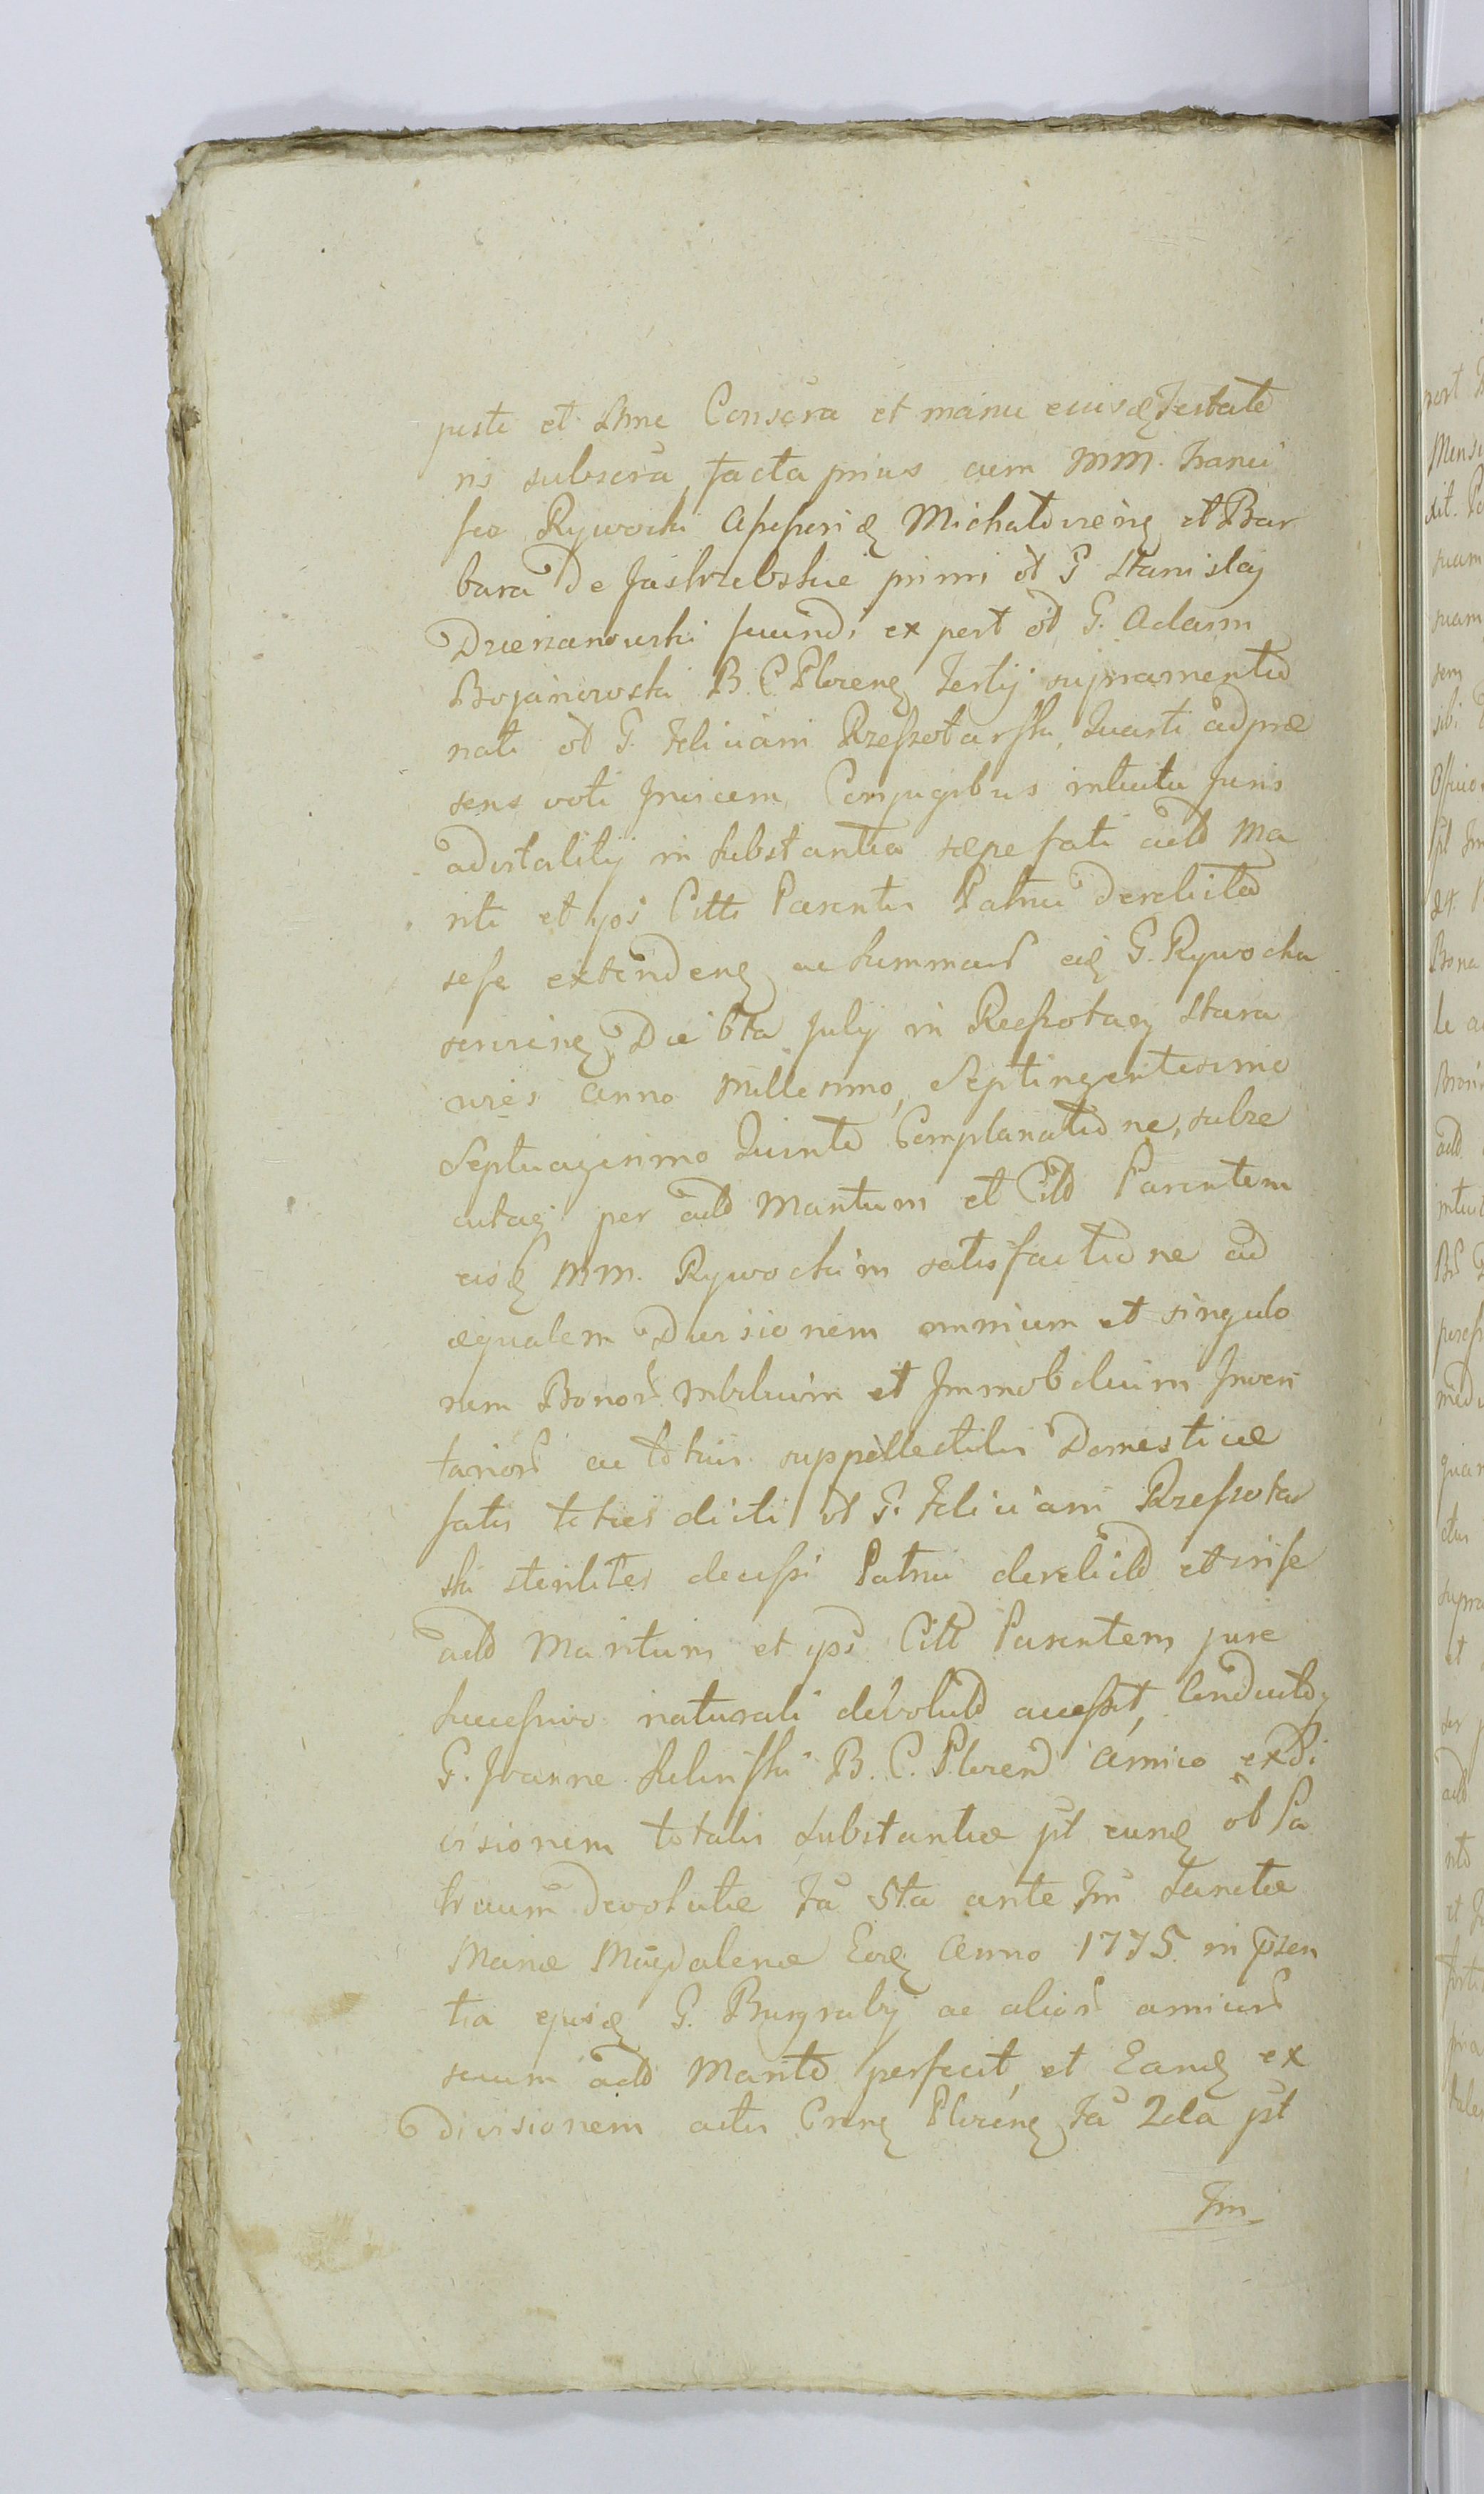 juste et ltme Conscra et manu eiusd Testato
ris subscra, facta prius cum MM. Franci
sco Rywocki Assessori Michałoviens et Bar
bara de Jastrzebskie primi ol G Stanislaj
Dzierzanowski secundi ex post ol G. Adami
Bojanowski B. C. Plocens Tertij supramentio
nati ol G. Feliciani Rzeszotarski, Quarti ad præ
sens voti Invicem Conjugibus intuitu Juris
advitalitij in Substantia sæpe fati actld Ma
riti et ypsi Citti Parentis Patrui derelicta
sese extendens ac Summar eid G. Rywocka
serviens Die 6ta July in Rzeszotary Stara
wies Anno Millesimo, Septingentesimo
Septuagesimo Quinto Complanatione, subse
cutaq per actld Maritum et Citld Parentem
eisd MM. Rywockim satisfactione ad
æqualem Divisionem omnium et singulo
rum Bonor Mbilium et Immobilium Inven
tarior ac totius suppellectilis Domesticæ
fatis toties dicti ol G. Feliciani Rzeszotar
ski steriliter decessi Patrui derelicto et in se
actld Maritum et yps Citt Parentem jure
Successivo naturali devoluto accessit, Conducto
G. Joanne Sulinski B. C. Plocen Amico exdi
visionem totalis Substantiæ pt eund ol Pa
truum Devolutæ Fa 5ta ante Fm Sanctæ
Mariæ Magdalenæ Eod Anno 1775 in præsen
tia ejusd G. Burgrabij ac alior amicor
suum actld Marito perfecit, et Eand ex
divisionem actis Crens Plocens Fa 2da pt
Fm